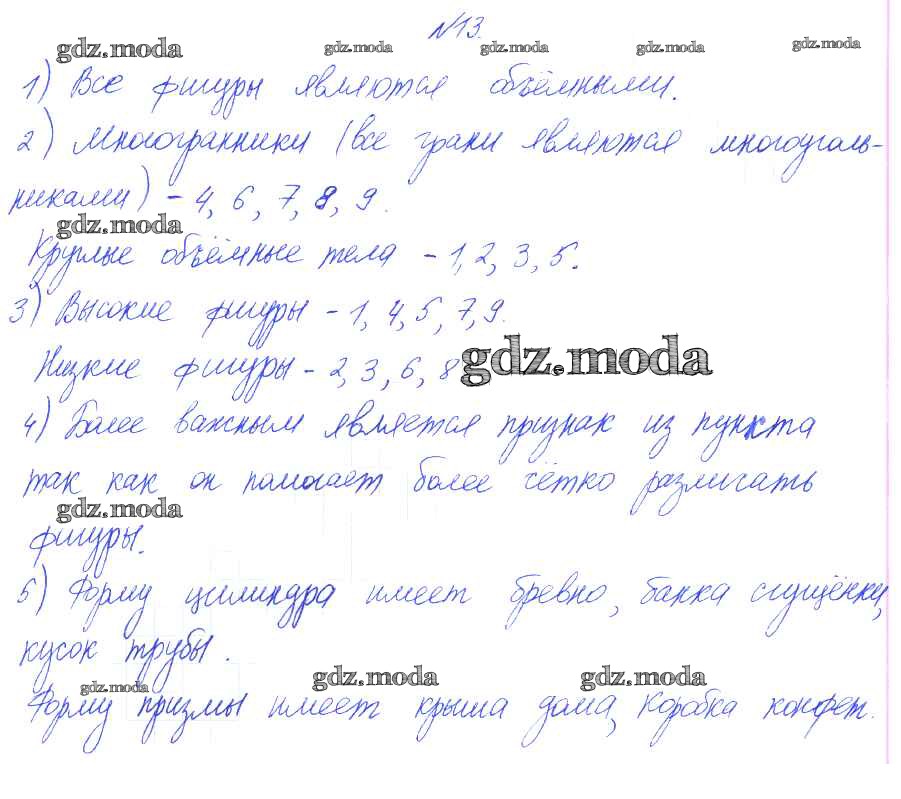 №13.
gdz.moda gdz.moda gdz.moda gdz.moda gdz.moda
1) Все фигуры являются объёмными.
2) Многогранники (все грани являются многоуголь-
никами) - 4, 6, 7, 8, 9.
gdz.moda
Круглые объёмные тела - 1, 2, 3, 5.
3) Высокие фигуры - 1, 4, 5, 7, 9.
Низкие фигуры - 2, 3, 6, 8 gdz.moda
4) Более важным является признак из пункта
так как он помогает более чётко различать
gdz.moda
фигуры.
5) Форму цилиндра имеет бревно, банка сгущёнки,
кусок трубы.
gdz.moda gdz.moda gdz.moda
Форму призмы имеет крыша дома, коробка конфет.